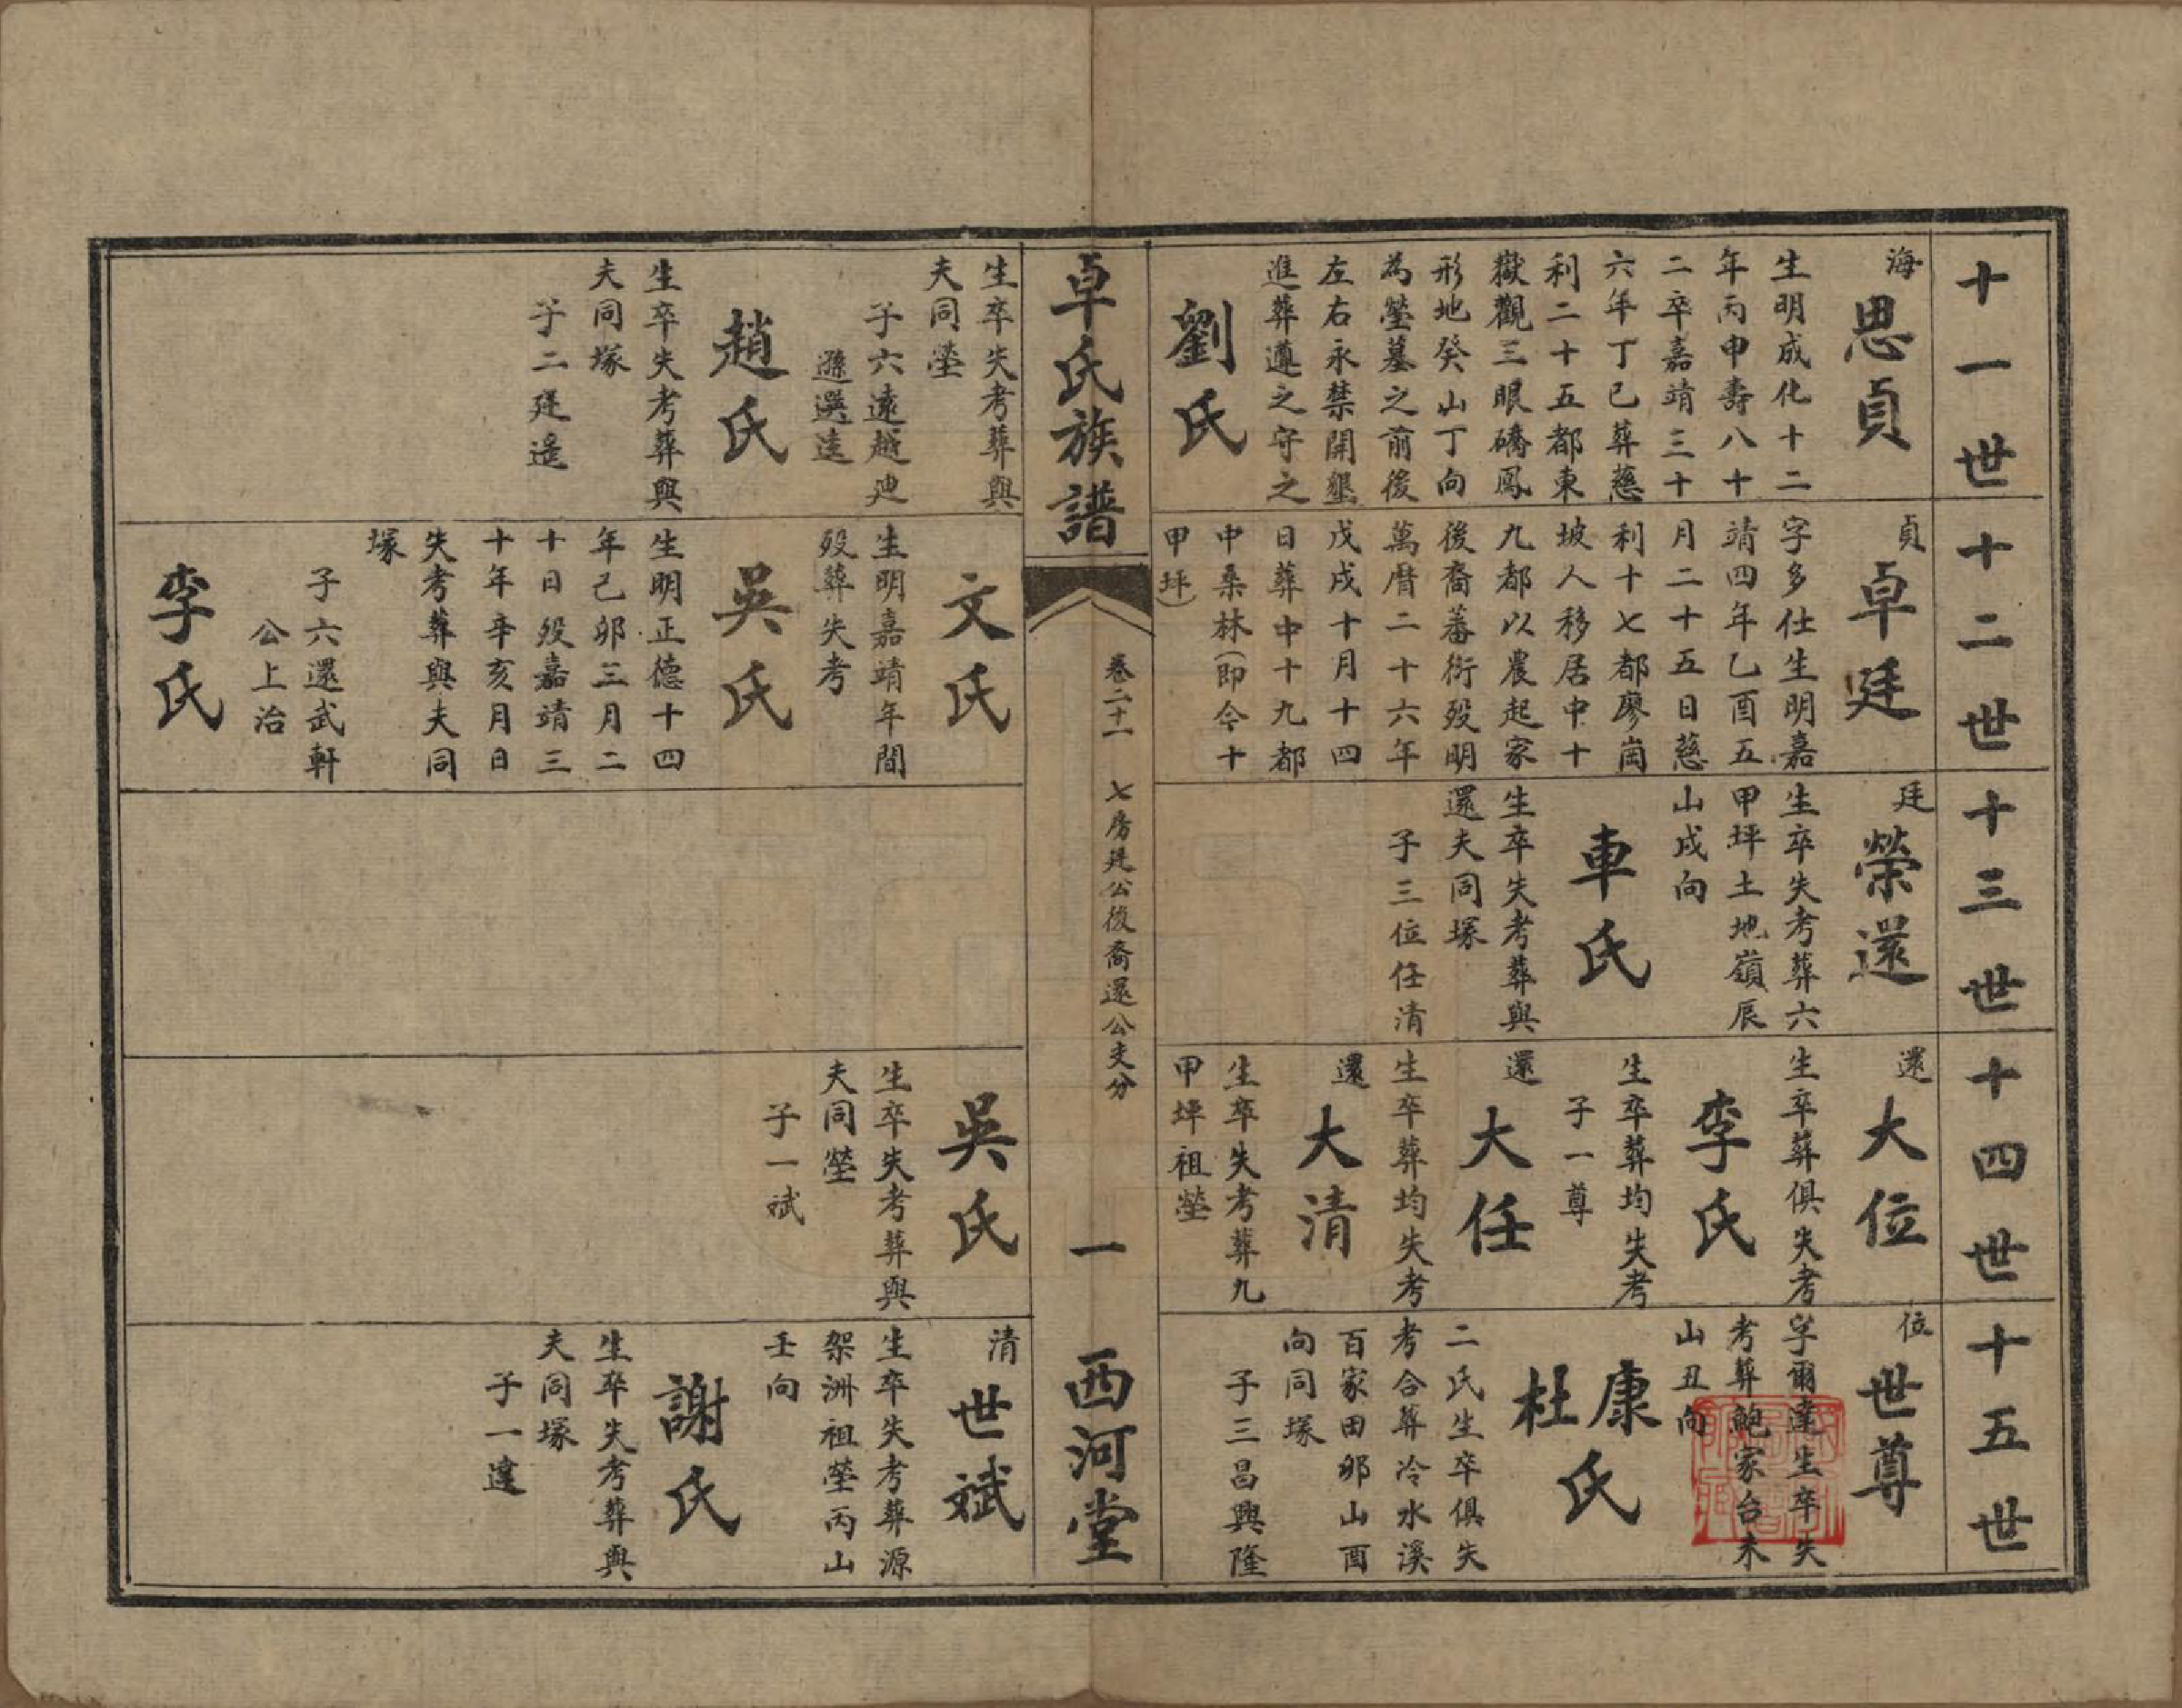 十一世
海
思貞
生明成化十二
年丙申壽八十
二卒嘉靖三十
六年丁巳葬慈
利二十五都東
嶽觀三眼磽鳳
形地癸山丁向
為塋墓之前後
左右永禁開墾
進葬遵之守之
劉氏
生卒失考葬與
夫同塋
子六遠越廸
遜選逵
趙氏
生卒失考葬與
夫同塚
子二廷遙
十二世
貞
卓廷
字多仕生明嘉
靖四年乙酉五
月二十五日慈
利十七都廖崗
坡人移居中十
九都以農起家
後裔蕃衍殁明
萬曆二十六年
戊戌十月十四
日葬中十九都
中桑林(即今十
甲坪)
文氏
生明嘉靖年間
殁葬失考
吳氏
生明正德十四
年己卯三月二
十日殁嘉靖三
十年辛亥月日
失考葬與夫同
塚
子六還武軒
公上治
李氏
十三世
廷
榮還
生卒失考葬六
甲坪土地嶺辰
山戌向
車氏
生卒失考葬與
還夫同塚
子三位任清
十四世
還
大位
生卒葬俱失考
李氏
生卒葬均失考
子一尊
還
大任
生卒葬均失考
還
大清
生卒失考葬九
甲坪祖塋
吳氏
生卒失考葬與
夫同塋
子一斌
十五世
位
世尊
字爾達生卒失
考葬鮑家台未
山丑向
康杜氏
二氏生卒俱失
考合葬冷水溪
百家田邜山酉
向同塚
子三昌興隆
清
世斌
生卒失考葬源
架洲祖塋丙山
壬向
謝氏
生卒失考葬與
夫同塚
子一達
卓氏族譜
卷二十一 七房廷公後裔還公支分
一
西河堂